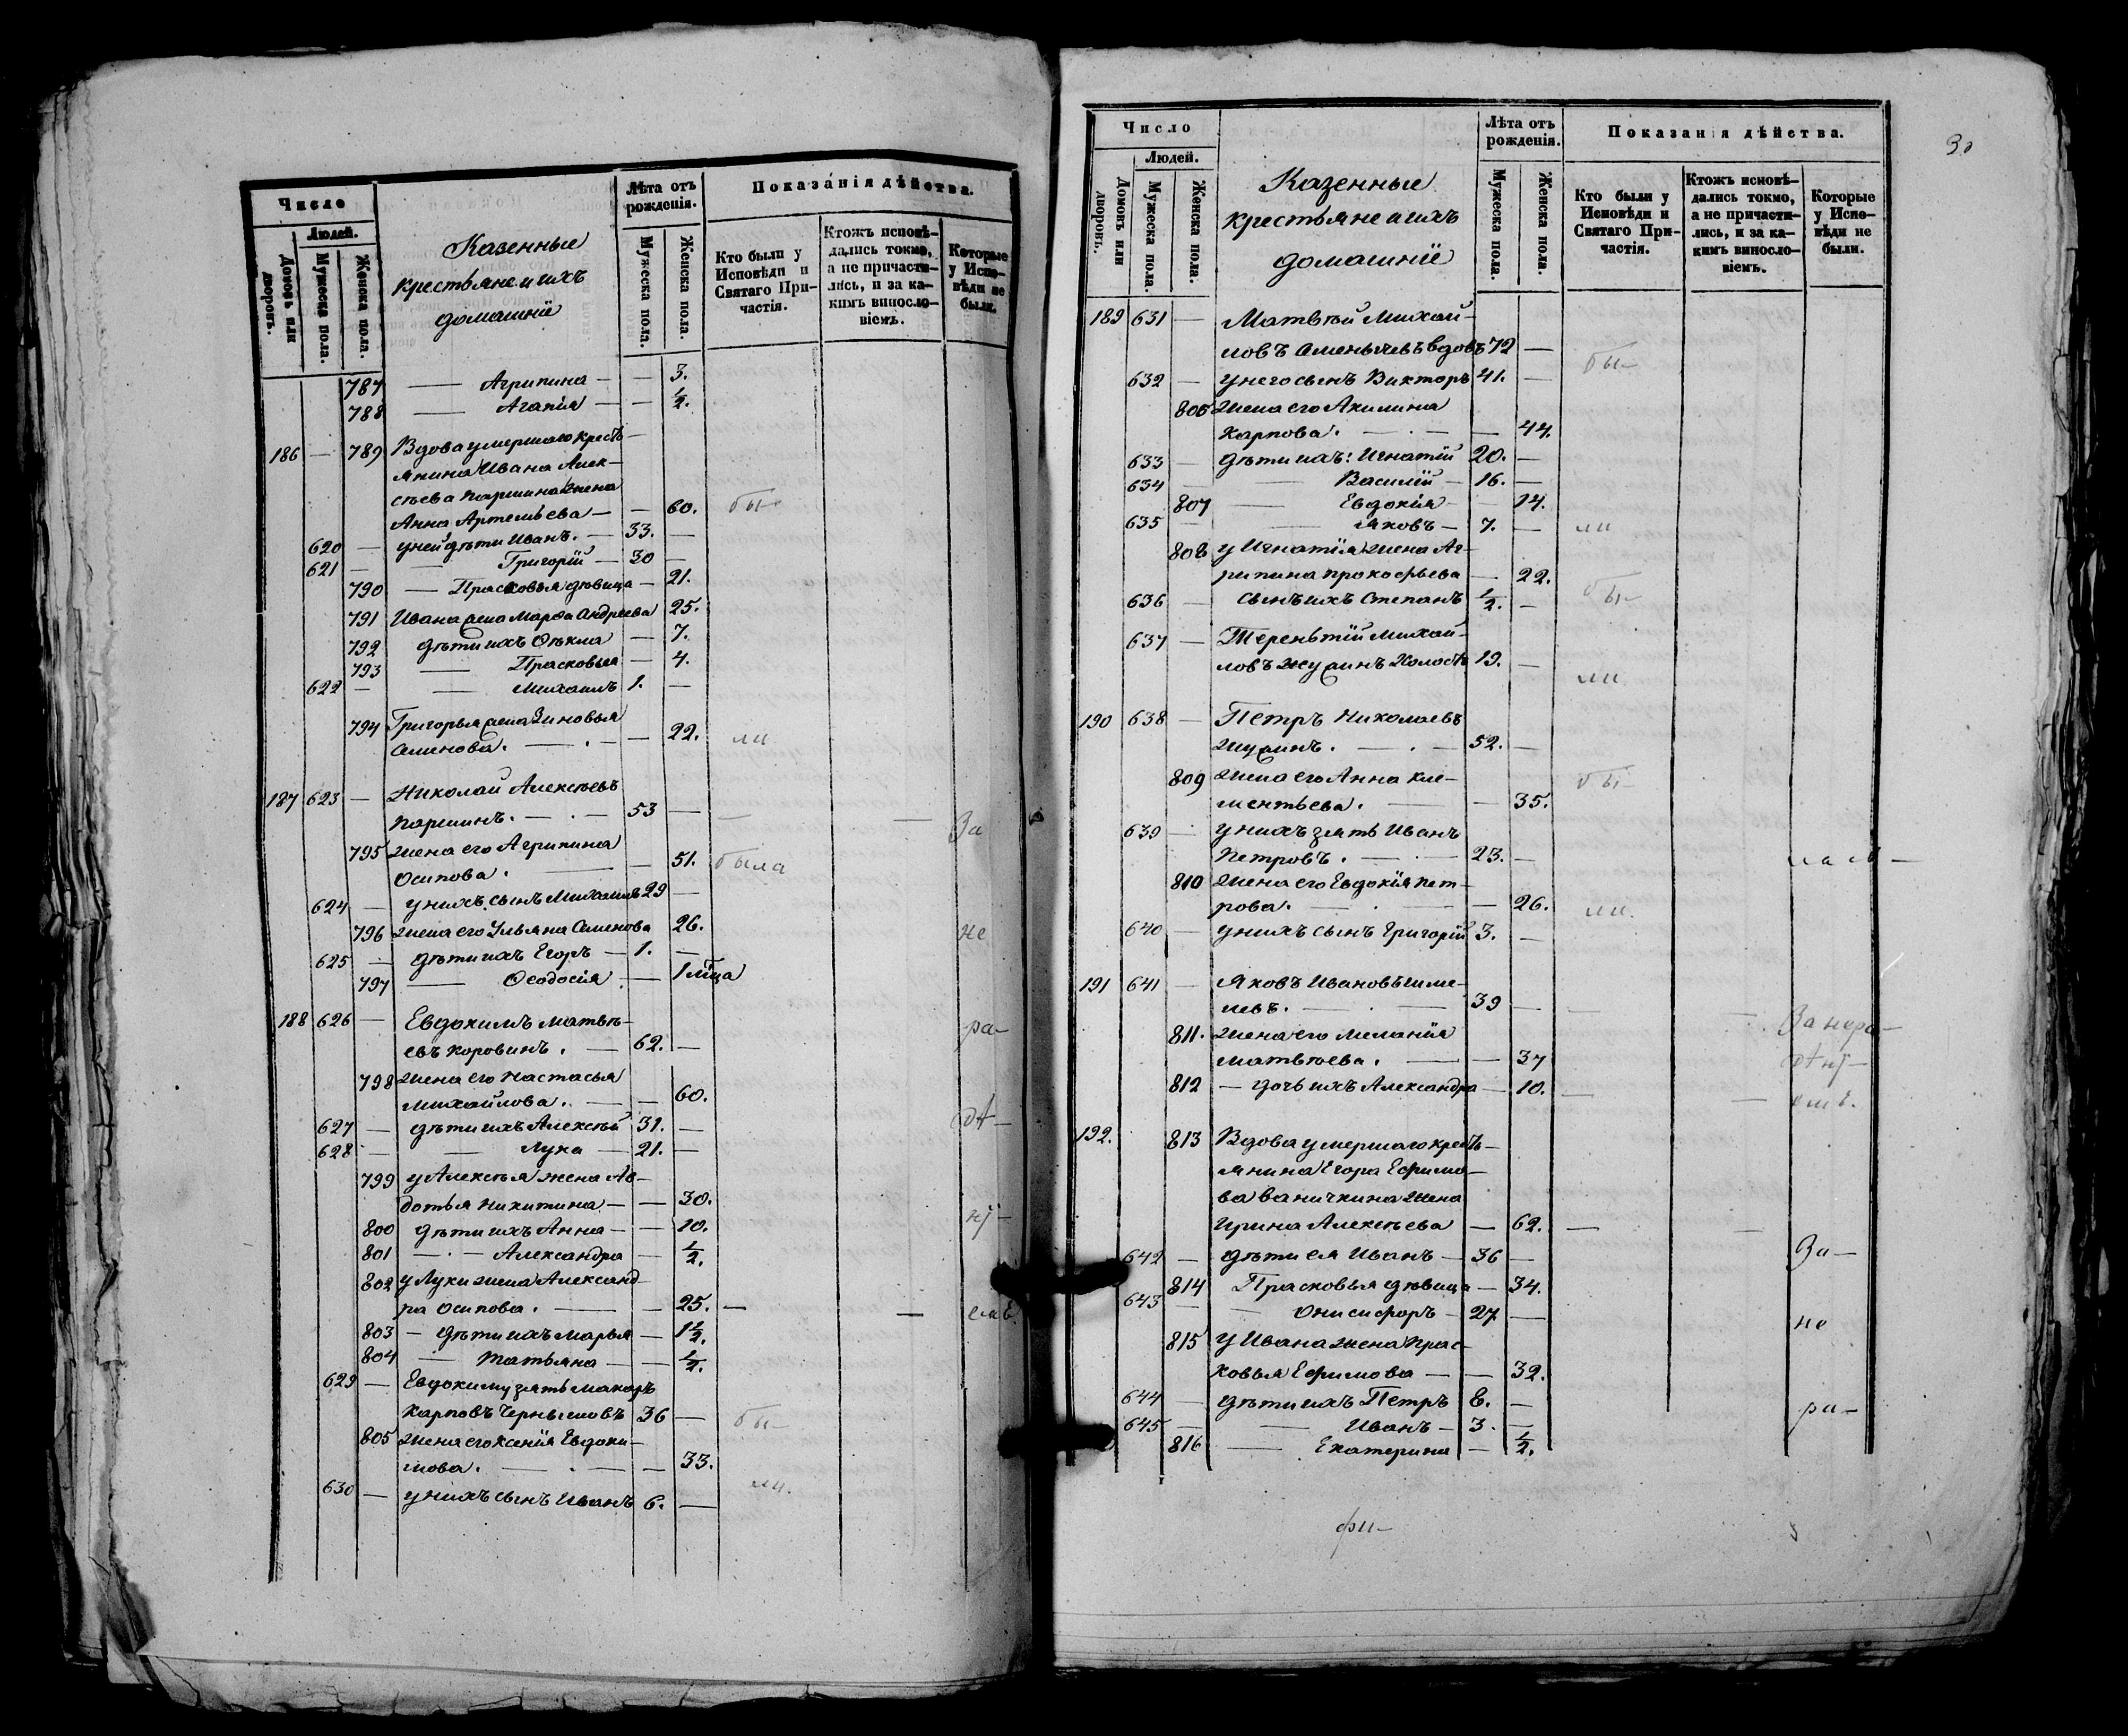 Число
Людей.
Домовъ или дворовъ.
Мужеска пола.
Женска пола.
Казенные
крестьяне и ихъ
домашніе
Лѣта отъ рожденія.
Мужеска пола.
Женска пола.
Показанія дѣйства.
Кто были у Исповѣди и Святаго Причастія.
Ктожъ исповѣдались токмо, а не причастились, и за какимъ винословіемъ.
Которые у Исповѣди не были.
787 — Агрипина — — 3.
788 — Агапія — — ½.
186 — 789 Вдова умершаго кресть-
янина Ивана Алек-
сѣева Паршина жена
Анна Артемьева — — 60. бы-
620 — у ней дѣти Иванъ. — 33. —
621 — — Григорій — 30 —
790 — Прасковья дѣвица — 21.
791 Ивана жена Марѳа Андреева 25.
792 дѣти ихъ Ѳекла — 7.
793 — Прасковья — 4.
622 — — Михаилъ 1. —
794 Григорья жена Зиновья
Семенова. — . — — 22. ли
187 623 — Николай Алексѣевъ
Паршинъ. — . — 53 — — — За
795 жена его Агрипина
Осипова. — — 51. была
624 — у нихъ сынъ Михаилъ 29 —
796 жена его Ульяна Семенова 26. не
625 — дѣти ихъ Егоръ — 1. —
797 — Ѳеодосія — 1 м͠ца
188 626 — Евдокимъ Матвѣ-
евъ Коровинъ. — 62. — ра-
798 жена его Настасья
Михайлова. — — 60.
627 — дѣти ихъ Алексѣй 31. —
628 — — Лука — 21. —
799 у Алексѣя жена Ав-
дотья Никитина — — 30.
800 дѣти ихъ Анна — — 10.
801 — . — Александра — ½.
802 у Луки жена Александ-
ра Осипова. — — 25. — —
803 — дѣти ихъ Марья — 1½.
804 — Татьяна — — ½.
629 — Евдокиму зять Макаръ
Карповъ Чернышовъ 36 — бы-
805 жена его Ксенія Евдоки-
мова. — . — — 33.
630 — у нихъ сынъ Иванъ 6. — ли.
Число
Людей.
Домовъ или дворовъ.
Мужеска пола.
Женска пола.
Казенные
крестьяне и ихъ
домашніе
Лѣта отъ рожденія.
Мужеска пола.
Женска пола.
Показанія дѣйства.
Кто были у Исповѣди и Святаго Причастія.
Ктожъ исповѣдались токмо, а не причастились, и за какимъ винословіемъ.
Которые у Исповѣди не были.
189 631 — Матвѣй Михай-
ловъ вдовъ 72 — бы-
632 — у него сынъ Викторъ 41. —
806 жена его Акилина
Карпова. — . — — 44.
633 — дѣти ихъ: Игнатій 20. —
634 — Василій — 16. —
807 — Евдокія — 14.
635 — — Яковъ — 7. — ли
808 у Игнатія жена Аг-
рипина Прокофьева — 22.
636 — сынъ ихъ Степанъ ½. — бы-
637 — Терентій Михай-
ловъ холостъ 19. — ли
190 638 — Петръ Николаевъ
— . — 52. —
809 жена его Анна Кле-
ментьева. — — 35. бы-
639 — у нихъ зять Иванъ
Петровъ. — . — 23. —
810 жена его Евдокія Пет-
рова. — . — — 26. ли.
640 — у нихъ сынъ Григорій 3. —
191 641 — Яковъ Ивановъ Шме-
левъ. — . — 39 — — — За нера-
811. жена его Меланія
Матвѣева. — — 37
812 — дочь ихъ Александра — 10. — —
192. 813 Вдова умершаго кресть-
янина Егора Ефимо-
ва Ваничкина жена
Ирина Алексѣева — 62. — — За-
642 — дѣти ея Иванъ — 36 —
814 Прасковья дѣвица — 34.
643 — — Онисифоръ — 27 — не
815 у Ивана жена Прас-
ковья Ефимова — — 32.
644 — дѣти ихъ Петръ —
645 — — Иванъ — 3. — ра-
816 — Екатерина — ½.